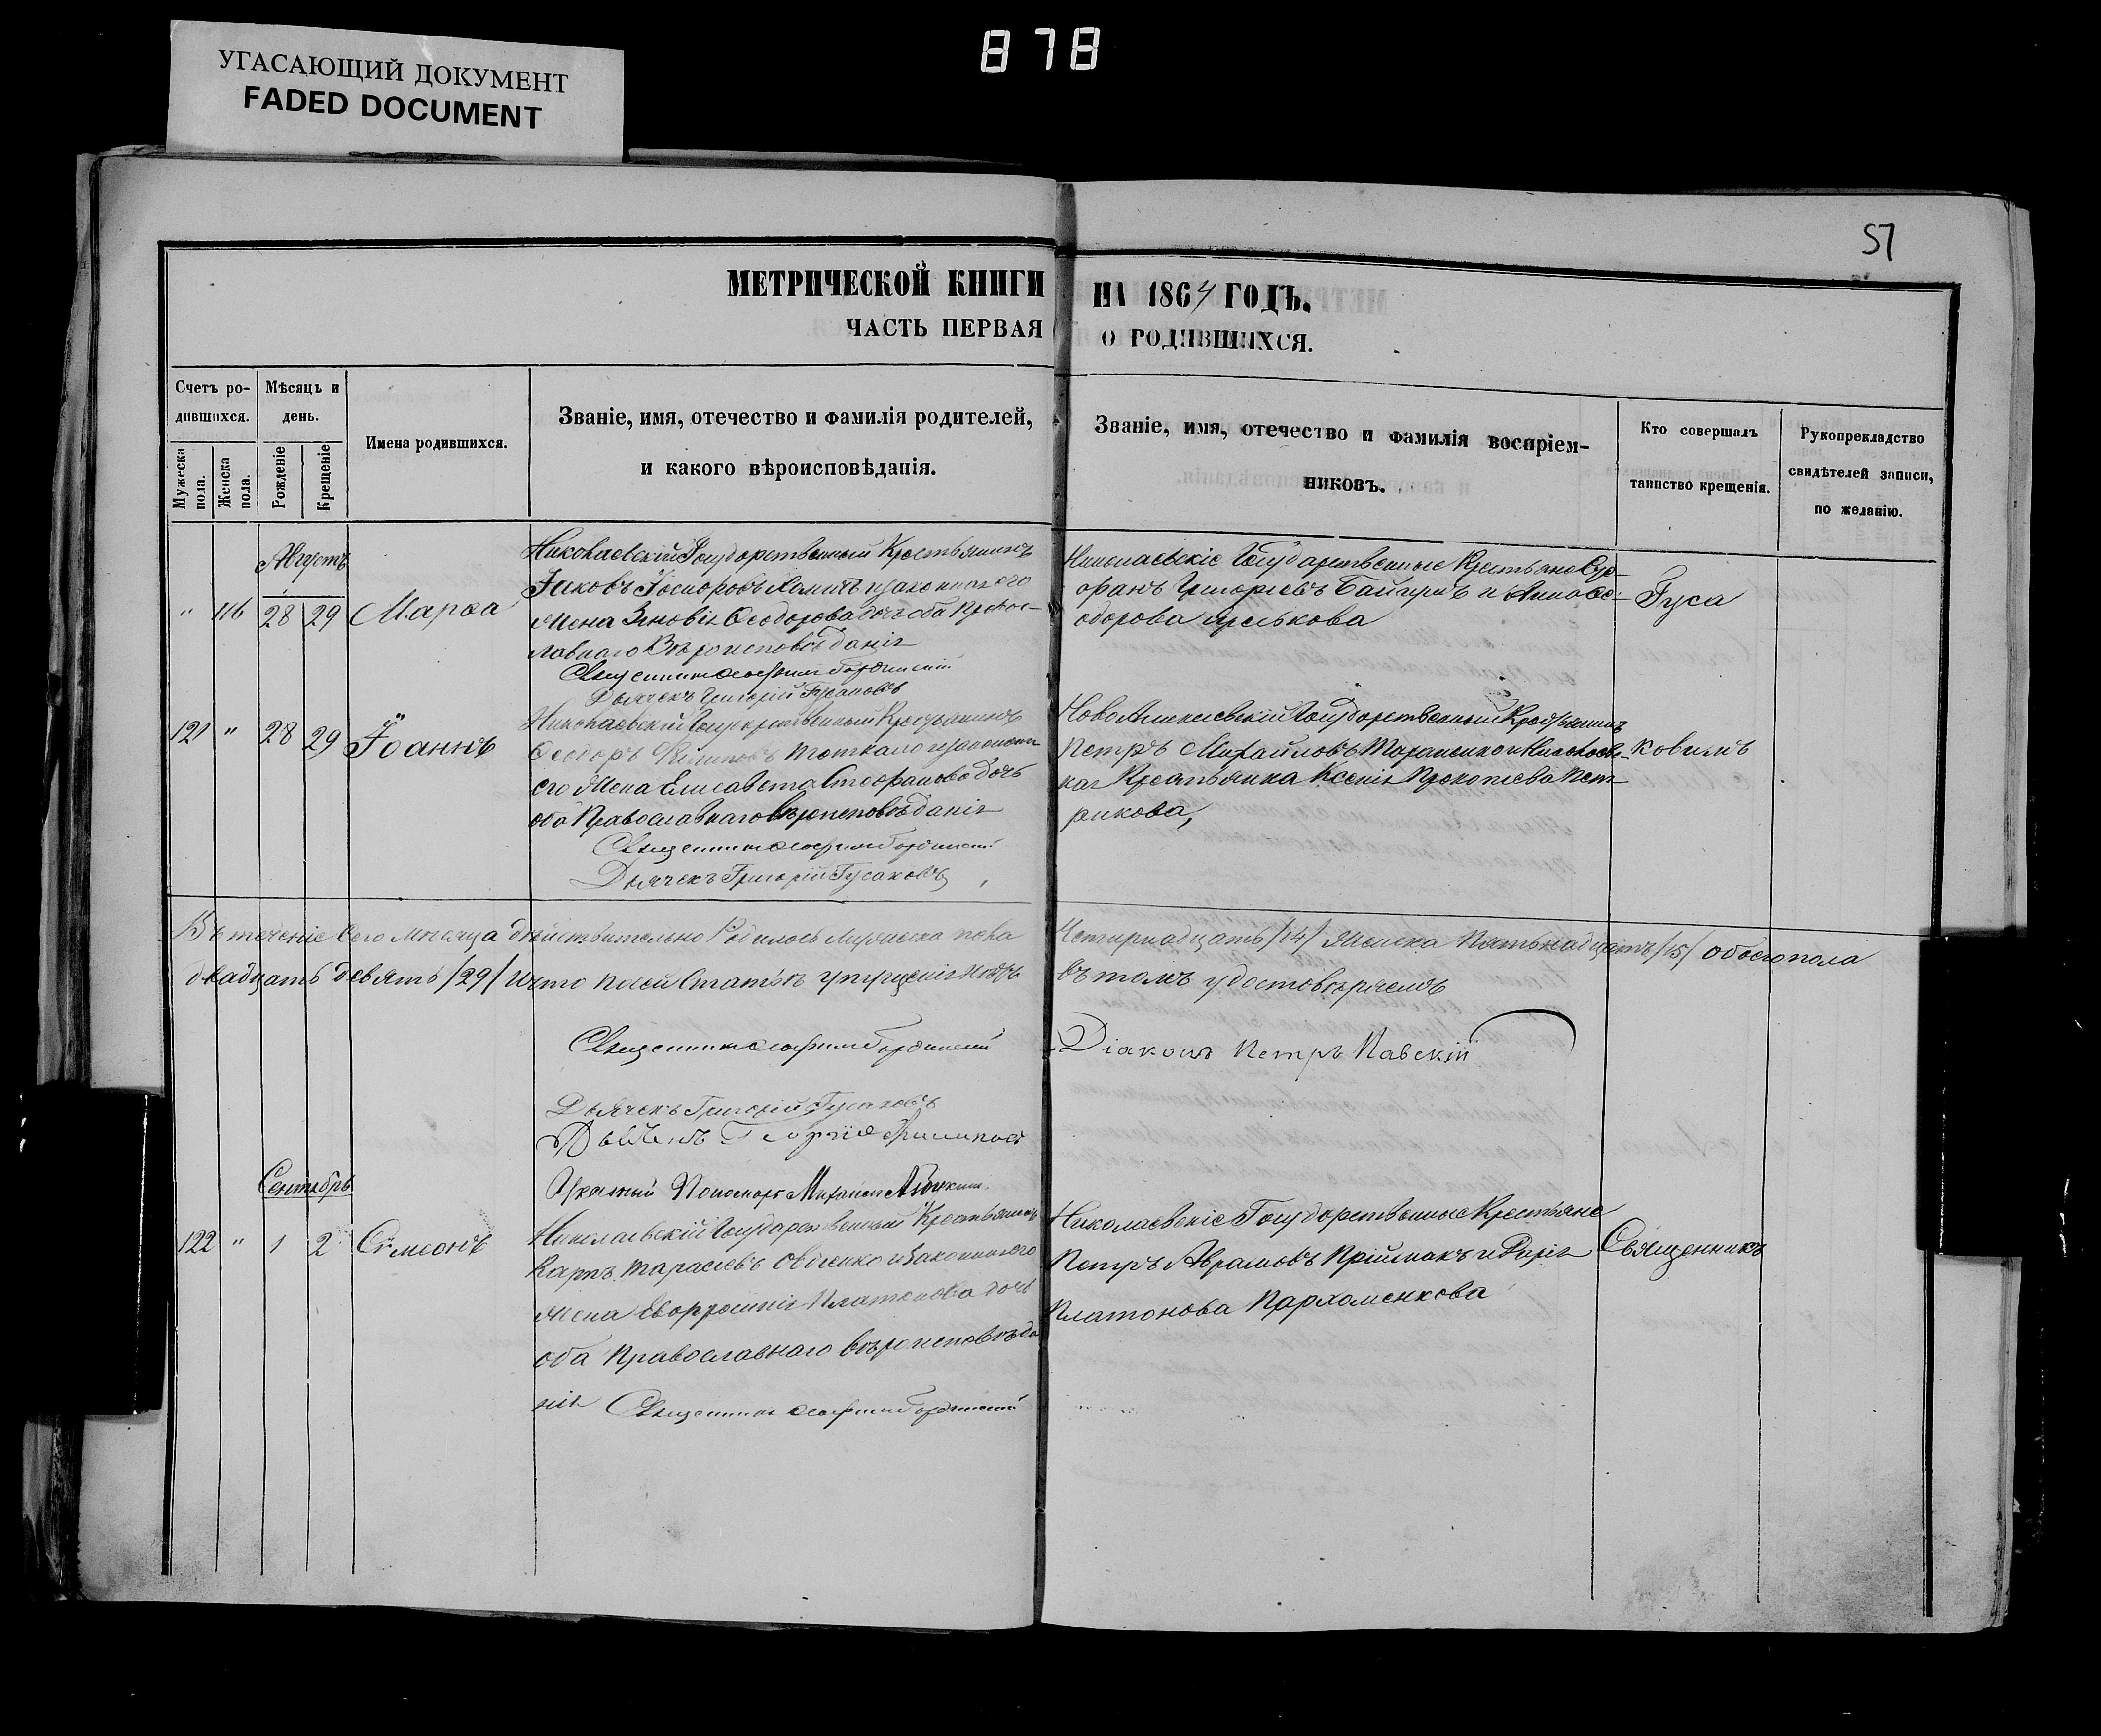 878
УГАСАЮЩИЙ ДОКУМЕНТ
FADED DOCUMENT
57
МЕТРИЧЕСКОЙ КНИГИ НА 1864 ГОДЪ.
ЧАСТЬ ПЕРВАЯ О РОДИВШИХСЯ.
Счетъ ро-
дившихся.
Мужеска
пола.
Женска
пола.
Мѣсяцъ и
день.
Рожденіе
Крещеніе
Имена родившихся.
Званіе, имя, отечество и фамилія родителей,
и какого вѣроисповѣданія.
Званіе, имя, отечество и фамилія воспріем-
никовъ.
Кто совершалъ
таинство крещенія.
Рукоприкладство
свидѣтелей записи,
по желанію.
Августъ
" 116 28 29 Марѳа
Николаевскій Государственный Крестьянинъ
Іаковъ законная его
жена Зиновія Ѳеодорова дочь оба Правос-
лавнаго Вѣроисповѣданія
Священникъ
Дьячекъ Григорій Гусаковъ
Николаевскіе Государственные Крестьяне
Григорьевъ и Анна Ѳе-
одорова
Гуса
121 " 28 29 Іоаннъ
Николаевскій Государственный Крестьянинъ
Ѳеодоръ и законная
его жена Елисавета Стефанова дочь
оба Православнаго вѣроисповѣданія
Священникъ
Дьячекъ Григорій Гусаковъ
Государственный Крестьянинъ
Петръ Михайловъ Тараненко и Николаевс-
кая Крестьянка Ксенія Прокопіева Пет-
рикова,
ковымъ
Въ теченіе сего мѣсяца дѣйствительно Родилось Мужеска пола Четырнадцать /14/ Женска Пятьнадцать /15/ обоего пола
двадцать девять /29/ и что по сей Статьѣ упущенія нѣтъ въ томъ удостовѣряемъ
Священникъ
Діаконъ Петръ Павскій
Дьячекъ Григорій Гусаковъ
Дьячекъ Георгій
Пономарь Михаилъ
Сентябрь
122 " 1 2 Сѵмеонъ
Николаевскій Государственный Крестьянинъ
Карпъ Тарасіевъ Овдіенко и законная его
жена Евфросинія Платонова дочь
оба Православнаго вѣроисповѣда
нія Священникъ
Николаевскіе Государственные Крестьяне
Петръ Аврамовъ Пріймакъ и
Платонова Пархоменкова
Священникъ